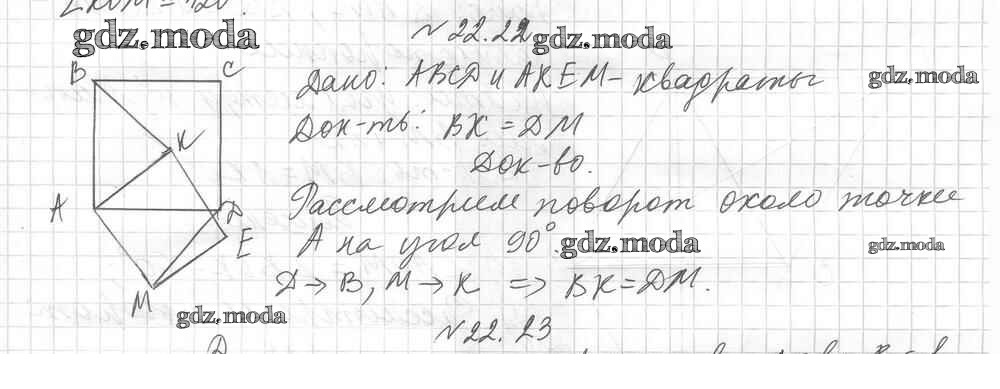 ∠KOM = 120°.
gdz.moda
№ 22.22 gdz.moda
B C
Дано: ABCD и AKEM – квадраты gdz.moda
Док-ть: BK = DM
K
Док-во.
A D
Рассмотрим поворот около точки
E
A на угол 90°. gdz.moda gdz.moda
D → B, M → K ⇒ BK = DM.
M gdz.moda
№ 22.23